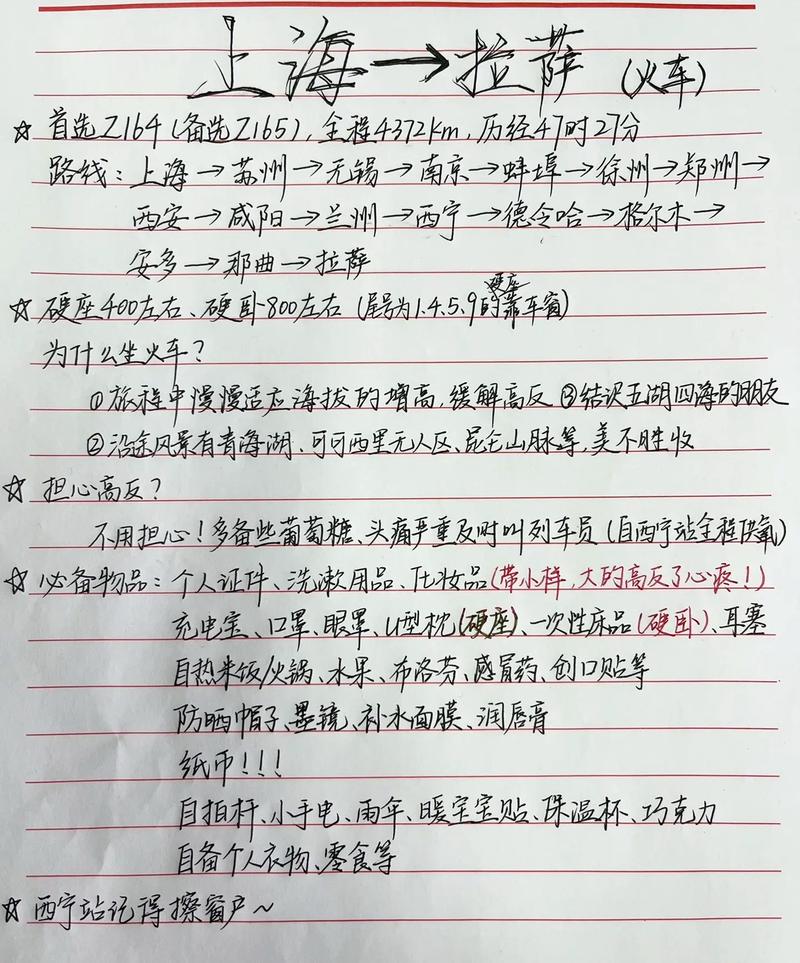 上海→拉萨(火车)
☆ 首选Z164(备选Z165),全程4372km,历经47时27分
路线:上海→苏州→无锡→南京→蚌埠→徐州→郑州→
西安→咸阳→兰州→西宁→德令哈→格尔木→
安多→那曲→拉萨
☆ 硬座400左右、硬卧800左右(尾号为1.4.5.9的硬座靠车窗)
为什么坐火车?
①旅程中慢慢适应海拔的增高,缓解高反 ③结识五湖四海的朋友
②沿途风景有青海湖、可可西里无人区、昆仑山脉等,美不胜收
☆ 担心高反?
不用担心!多备些葡萄糖、头痛严重及时叫列车员(自西宁站全程供氧)
☆ 必备物品:个人证件、洗漱用品、化妆品(带小样,大的高反了心疼!)
充电宝、口罩、眼罩、U型枕(硬座)、一次性床品(硬卧)、耳塞
自热米饭/火锅、水果、布洛芬、感冒药、创口贴等
防晒帽子、墨镜、补水面膜、润唇膏
纸币!!!
自拍杆、小手电、雨伞、暖宝宝贴、保温杯、巧克力
自备个人衣物、零食等
☆ 西宁站记得擦窗户~